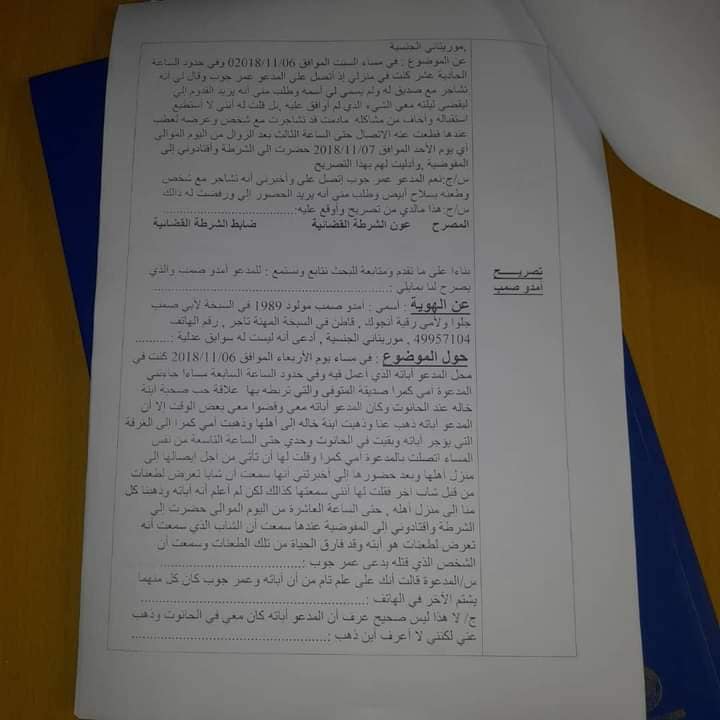 ,موريتاني الجنسية
عن الموضوع : في مساء السبت الموافق 02018/11/06 وفي حدود الساعة
الحادية عشر كنت في منزلي إذ أتصل علي المدعو عمر جوب وقال لي أنه
تشاجر مع صديق له ولم يسمي لي أسمه وطلب مني أنه يريد القدوم إلي
ليقضي ليلته معي الشيء الذي لم أوافق عليه ,بل قلت له أنني لا أستطيع
استقباله وأخاف من مشاكله مادمت قد تشاجرت مع شخص وعرضه لعطب
عندها قطعت عنه الاتصال حتى الساعة الثالث بعد الزوال من اليوم الموالي
أي يوم الأحد الموافق 2018/11/07 حضرت إلي الشرطة وأقتادوني إلى
المفوضية ,وأدليت لهم بهذا التصريح
س/ج:نعم المدعو عمر جوب إتصل علي وأخبرني أنه تشاجر مع شخص
وطعنه بسلاح أبيض وطلب مني أنه يريد الحضور إلي ورفضت له ذالك
س/ج: هذا مالدي من تصريح وأوقع عليه:...............................
المصرح عون الشرطة القضائية ضابط الشرطة القضائية
تصريـــــح
أمدو صمب
بناءا على ما تقدم ومتابعة للبحث نتابع ونستمع : للمدعو أمدو صمب والذي
يصرح لنا بمايلي : ...............................................
عن الهوية : أسمي : أمدو صمب مولود 1989 في السبخة لابي صمب
جلوا ولأمي رقية أنجوك , قاطن في السبخة المهنة تاجر , رقم الهاتف
49957104 , موريتاني الجنسية , أدعى أنه ليست له سوابق عدلية :..........
حول الموضوع : في مساء يوم الأربعاء الموافق 2018/11/06 كنت في
محل المدعو أباته الذي أعمل فيه وفي حدود الساعة السابعة مساءا جاءتني
المدعوة امي كمرا صديقة المتوفى والتي تربطه بها علاقة حب صحبة ابنة
خاله عند الحانوت وكان المدعو أباته معي وقضوا معي بعض الوقت الا أن
المدعو أباته ذهب عنا وذهبت ابنة خاله الى أهلها وذهبت امي كمرا الى الغرفة
التي يؤجر أباته وبقيت في الحانوت وحدي حتى الساعة التاسعة من نفس
المساء اتصلت بالمدعوة امي كمرا وقلت لها أن تأتي من اجل ايصالها إلى
منزل أهلها وبعد حضورها إلي أخبرتني أنها سمعت أن شابا تعرض لطعنات
من قبل شاب اخر فقلت لها أنني سمعتها كذالك لكن لم أعلم أنه أباته وذهبنا كل
منا الى منزل أهله , حتى الساعة العاشرة من اليوم الموالي حضرت إلي
الشرطة وأقتادوني الى المفوضية عندها سمعت أن الشاب الذي سمعت أنه
تعرض لطعنات هو أبته وقد فارق الحياة من تلك الطعنات وسمعت أن
الشخص الذي قتله يدعى عمر جوب :........................................
س/المدعوة قالت أنك على علم تام من أن أباته وعمر جوب كان كل منهما
يشتم الآخر في الهاتف :...............................................
ج/ لا هذا ليس صحيح عرف أن المدعو أباته كان معي في الحانوت وذهب
عني لكنني لا أعرف أين ذهب :.............................................